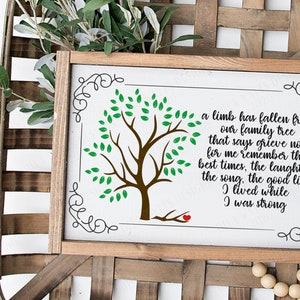 a limb has fallen fr
our family tree
that says grieve no
for me remember th
best times, the laught
the song, the good li
I lived while
I was strong